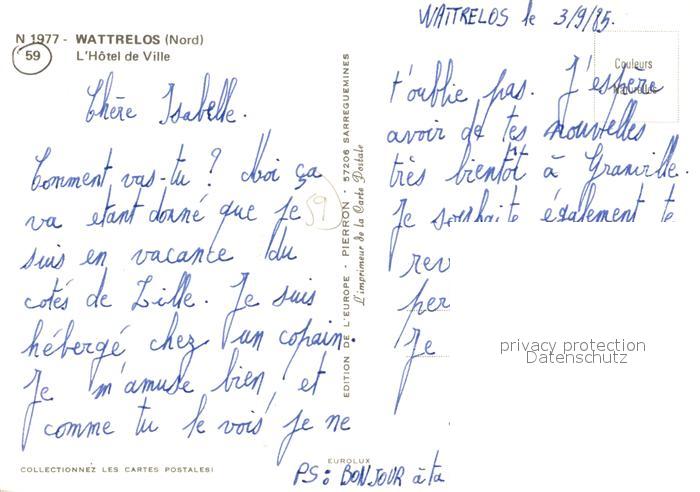 N 1977 - WATTRELOS (Nord)
59
L'Hôtel de Ville
Chère Isabelle.
Comment vas-tu ? Moi ça
va etant donné que je
suis en vacance du
cotés de Lille. Je suis
hébergé chez un copain.
Je m'amuse bien, et
comme tu le vois je ne
59
COLLECTIONNEZ LES CARTES POSTALES!
EDITION DE L'EUROPE - PIERRON - 57206 SARREGUEMINES
L'imprimeur de la Carte Postale
EUROLUX
WATTRELOS le 3/9/85.
Couleurs
Naturelles
t'oublie pas. J'espère
avoir de tes nouvelles
très bientôt à Granville.
Je souhaite également te
rev
per
Je
privacy protection
Datenschutz
PS: BONJOUR à ta